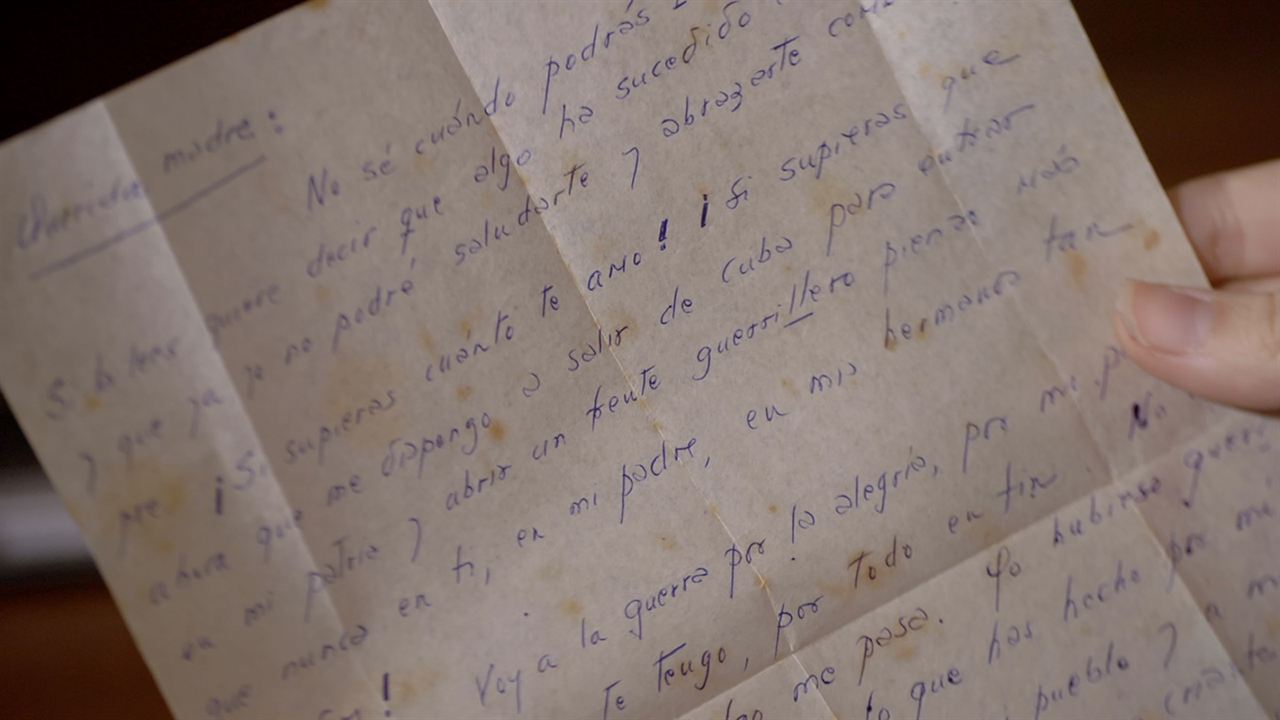 Querida madre:
No sé cuándo podrás
Si la lees quiere decir que algo ha sucedido
y que ya no podré saludarte y abrazarte como
pre. ¡Si supieras cuánto te amo! ¡Si supieras que
ahora que me dispongo a salir de Cuba para entrar
en mi patria y abrir un frente guerrillero pienso más
que nunca en ti, en mi padre, en mis hermanos tan
! Voy a la guerra por la alegría, por mi
te tengo, por todo en fin. No
me pasa. Yo hubiese
lo que has hecho por mí
pueblo y a